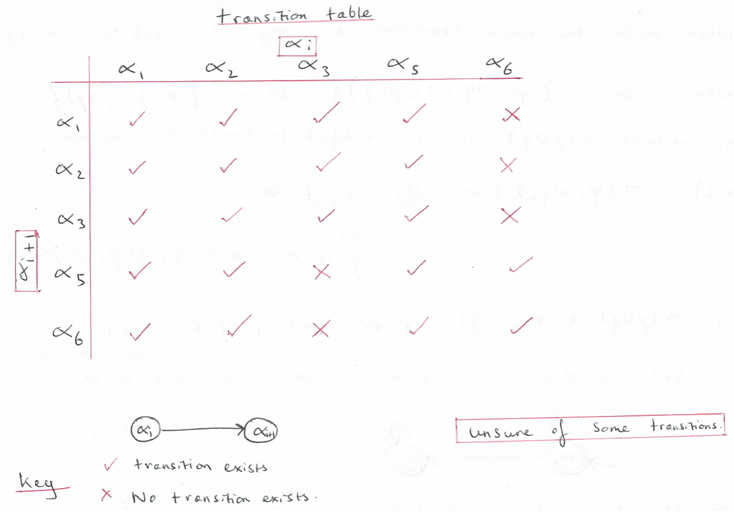 transition table
αi
α1 α2 α3 α5 α6
α1 ✓ ✓ ✓ ✓ ✗
α2 ✓ ✓ ✓ ✓ ✗
α3 ✓ ✓ ✓ ✓ ✗
αi+1
α5 ✓ ✓ ✗ ✓ ✓
α6 ✓ ✓ ✗ ✓ ✓
αi → αi+1
unsure of some transitions.
Key
✓ transition exists
✗ No transition exists.